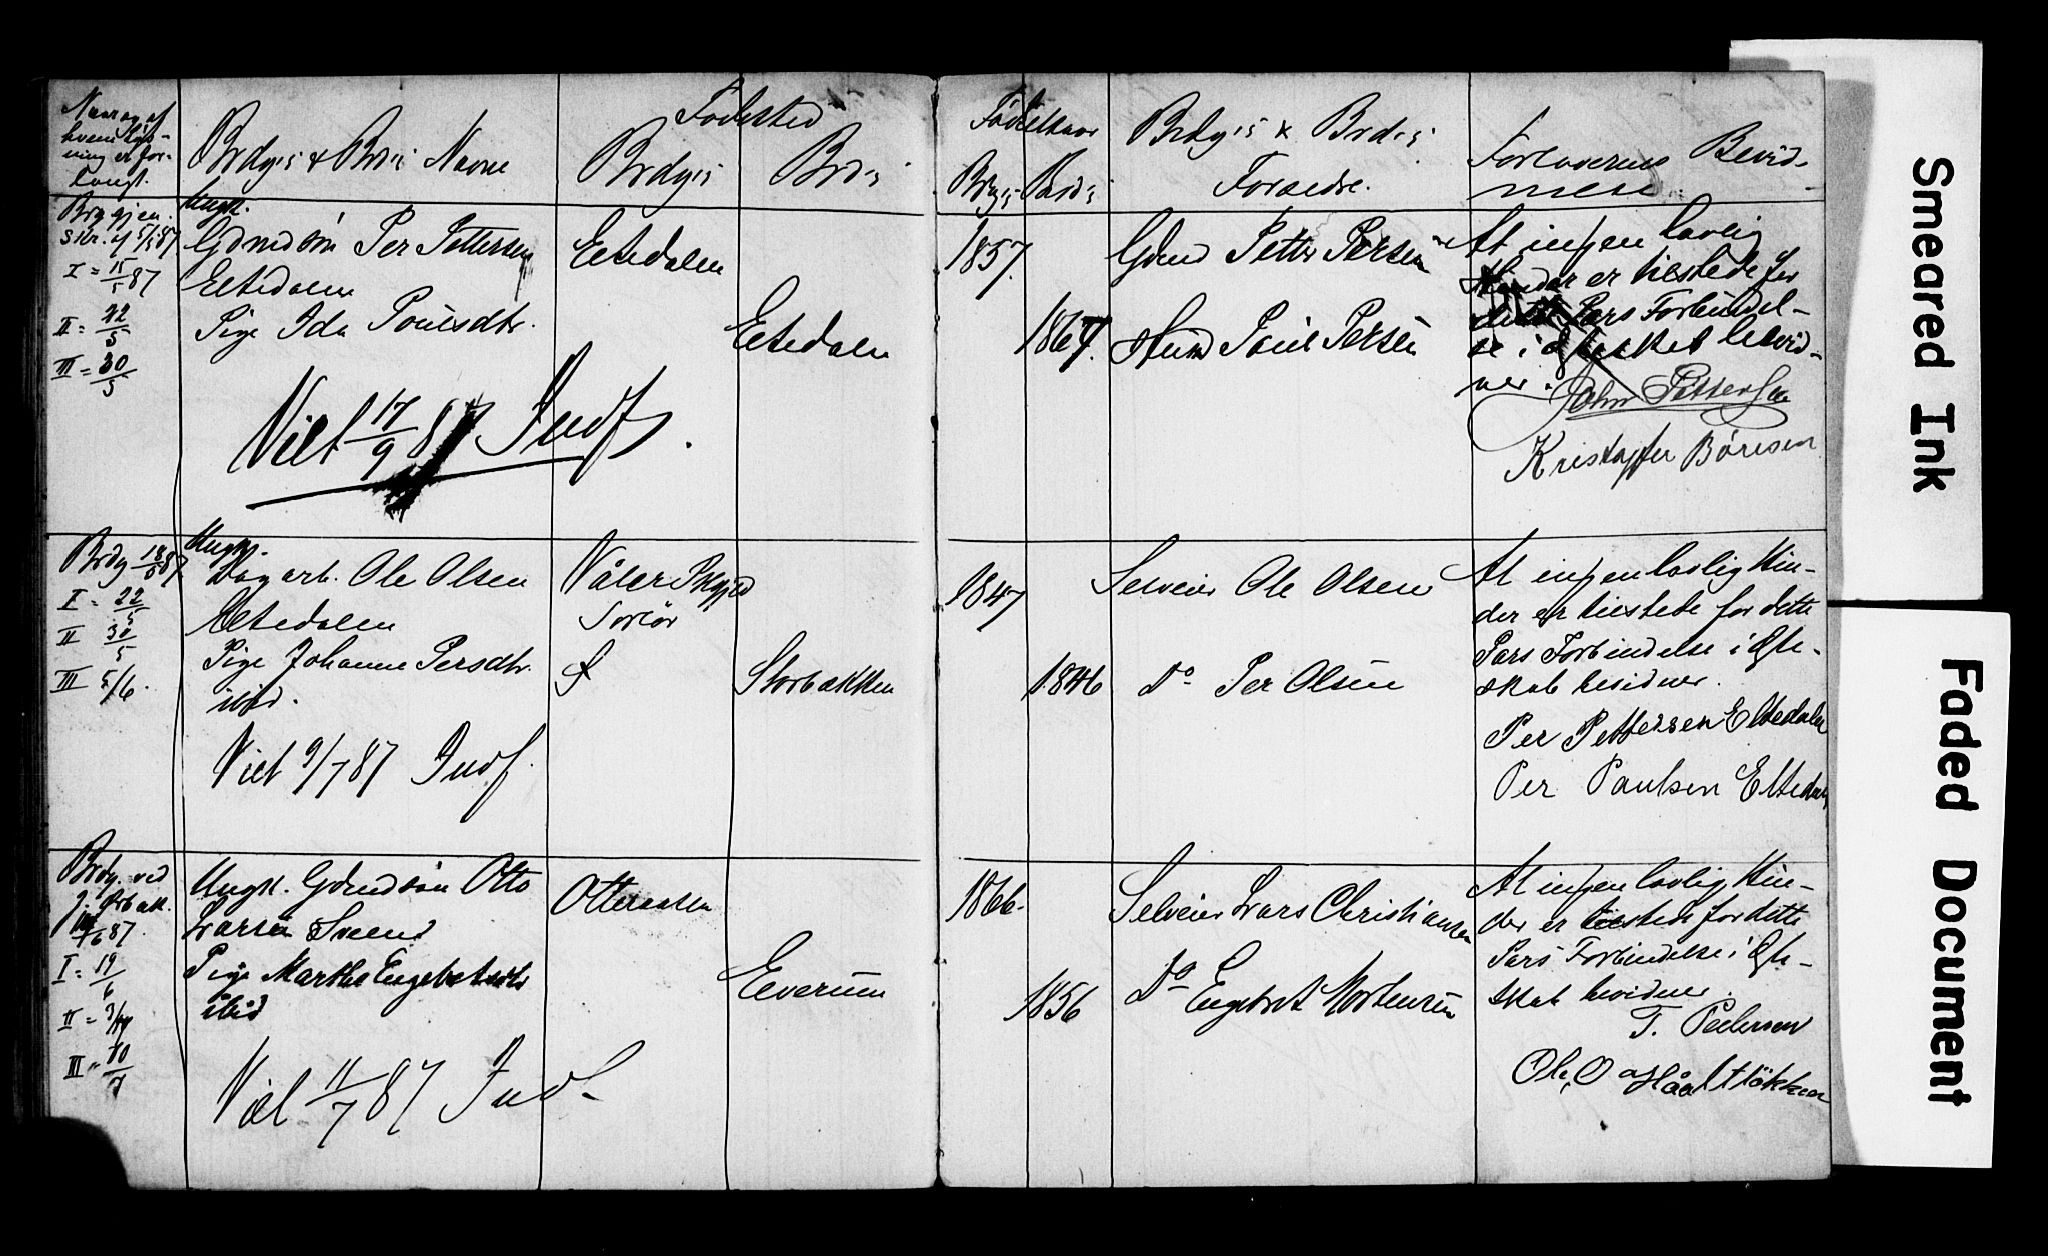 Naar og af
hvem lys-
ning er for-
langt.
Brdg.s & Brds Navne
Fødested
Brdg.s
Brds
Fødselsaar
Brdg.s
Brds
Brdg.s & Brds
Forældre.
Forloverens Bevid-
nelse
Brdg gjen.
skr. af 5/5 87
I = 15/5 87
II = 22/5
III = 30/5
Ungk.
Gdmdsøn Per Pettersen
Eltedalen
Pige Ida Poulsdtr.
Eltedalen
Eltedalen
1857.
1867.
Gdmd Petter Persen
Hmd Poul Persen
At ingen lovlig
Hinder er tilstede for
dette Pars Forbindel-
se i Ægteskab bevid-
ner.
John Pettersen
Kristoffer Børesen
Viet 17/9 87 Indf.
Brdg 18/5 87
I = 22/5
II 30/5
III 5/6.
Ungk.
Dagarb. Ole Olsen
Eltedalen
Pige Johanne Persdtr.
ibid.
Våler Prgjld
Solør
Storbakken
1847
1846
Selveier Ole Olsen
Do Per Olsen
At ingen lovlig Hin-
der er tilstede for dette
Pars Forbindelse i Ægte-
skab bevidner.
Per Pettersen Eltedalen
Per Paulsen Eltedalen
Viet 9/7 87 Indf.
Brdg. ved
87.
I = 19/6
II = 3/7
III = 10/7
Ungk. Gdmdsøn Otto
Larsen Sveend
Pige Marthe Engebretsdtr
ibid
Otteraasen
Elverum
1866.
1856
Selveier Lars Christiansen
Do Engebret Mortensen
At ingen lovlig Hin-
der er tilstede for dette
Pars Forbindelse i Ægte-
skab bevidner.
T. Pedersen
Ole O
Viet 11/7 87 Indf.
Smeared Ink
Faded Document